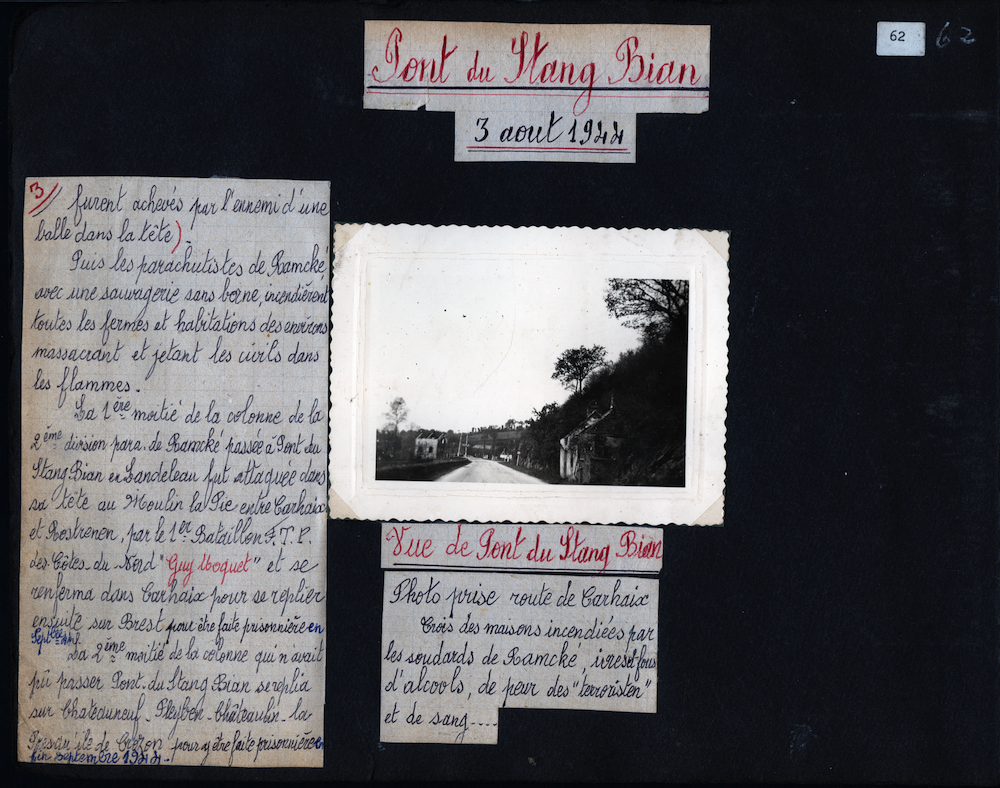 62
62
Pont du Stang Bian
3 aout 1944
3//
furent achevés par l'ennemi d'une
balle dans la tête).
Puis les parachutistes de Ramcké
avec une sauvagerie sans borne, incendièrent
toutes les fermes et habitations des environs
massacrant et jetant les civils dans
les flammes.
La 1ère moitié de la colonne de la
2ème division para. de Ramcké passée à Pont du
Stang Bian en Landeleau fut attaquée dans
sa tête au Moulin la Pie entre Carhaix
et Rostrenen, par le 1er Bataillon F.T.P.
des Côtes-du-Nord "Guy Moquet" et se
renferma dans Carhaix pour se replier
ensuite sur Brest pour être faite prisonnière en
Septbre 44
La 2ème moitié de la colonne qui n'avait
pû passer Pont-du Stang Bian se replia
sur Chateauneuf-Pleyben-Châteaulin-la
Presqu'île de Crozon pour y être faite prisonnière en
fin septembre 1944.
Vue de Pont du Stang Bian
Photo prise route de Carhaix
Trois des maisons incendiées par
les soudards de Ramcké, ivres et fous
d'alcools, de peur des "terroristen"
et de sang....